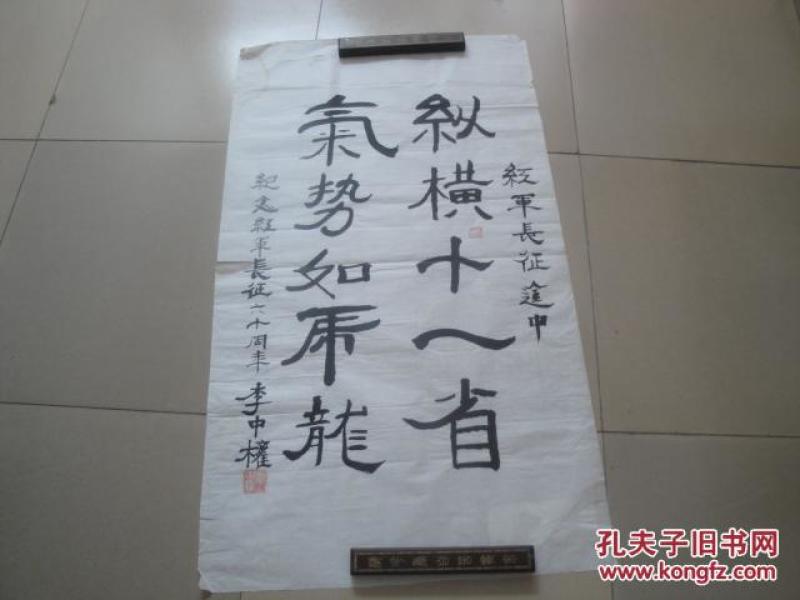 红军長征途中
纵横十一省
氣势如虎龍
纪念红军長征六十周年 李中權
孔夫子旧书网
www.kongfz.com